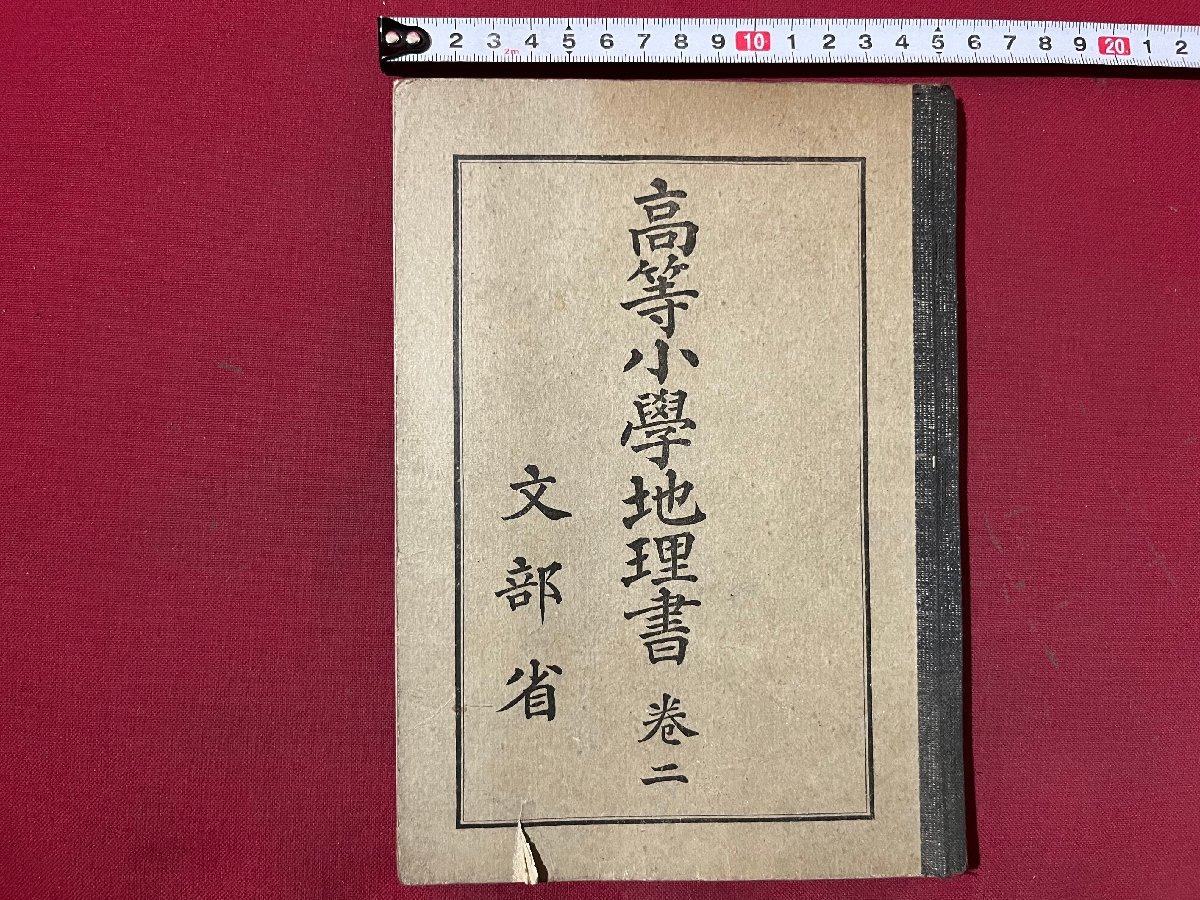 2 3 4 5 6 7 8 9 10 1 2 3 4 5 6 7 8 9 20 1 2
2m
高等小學地理書 卷二
文部省